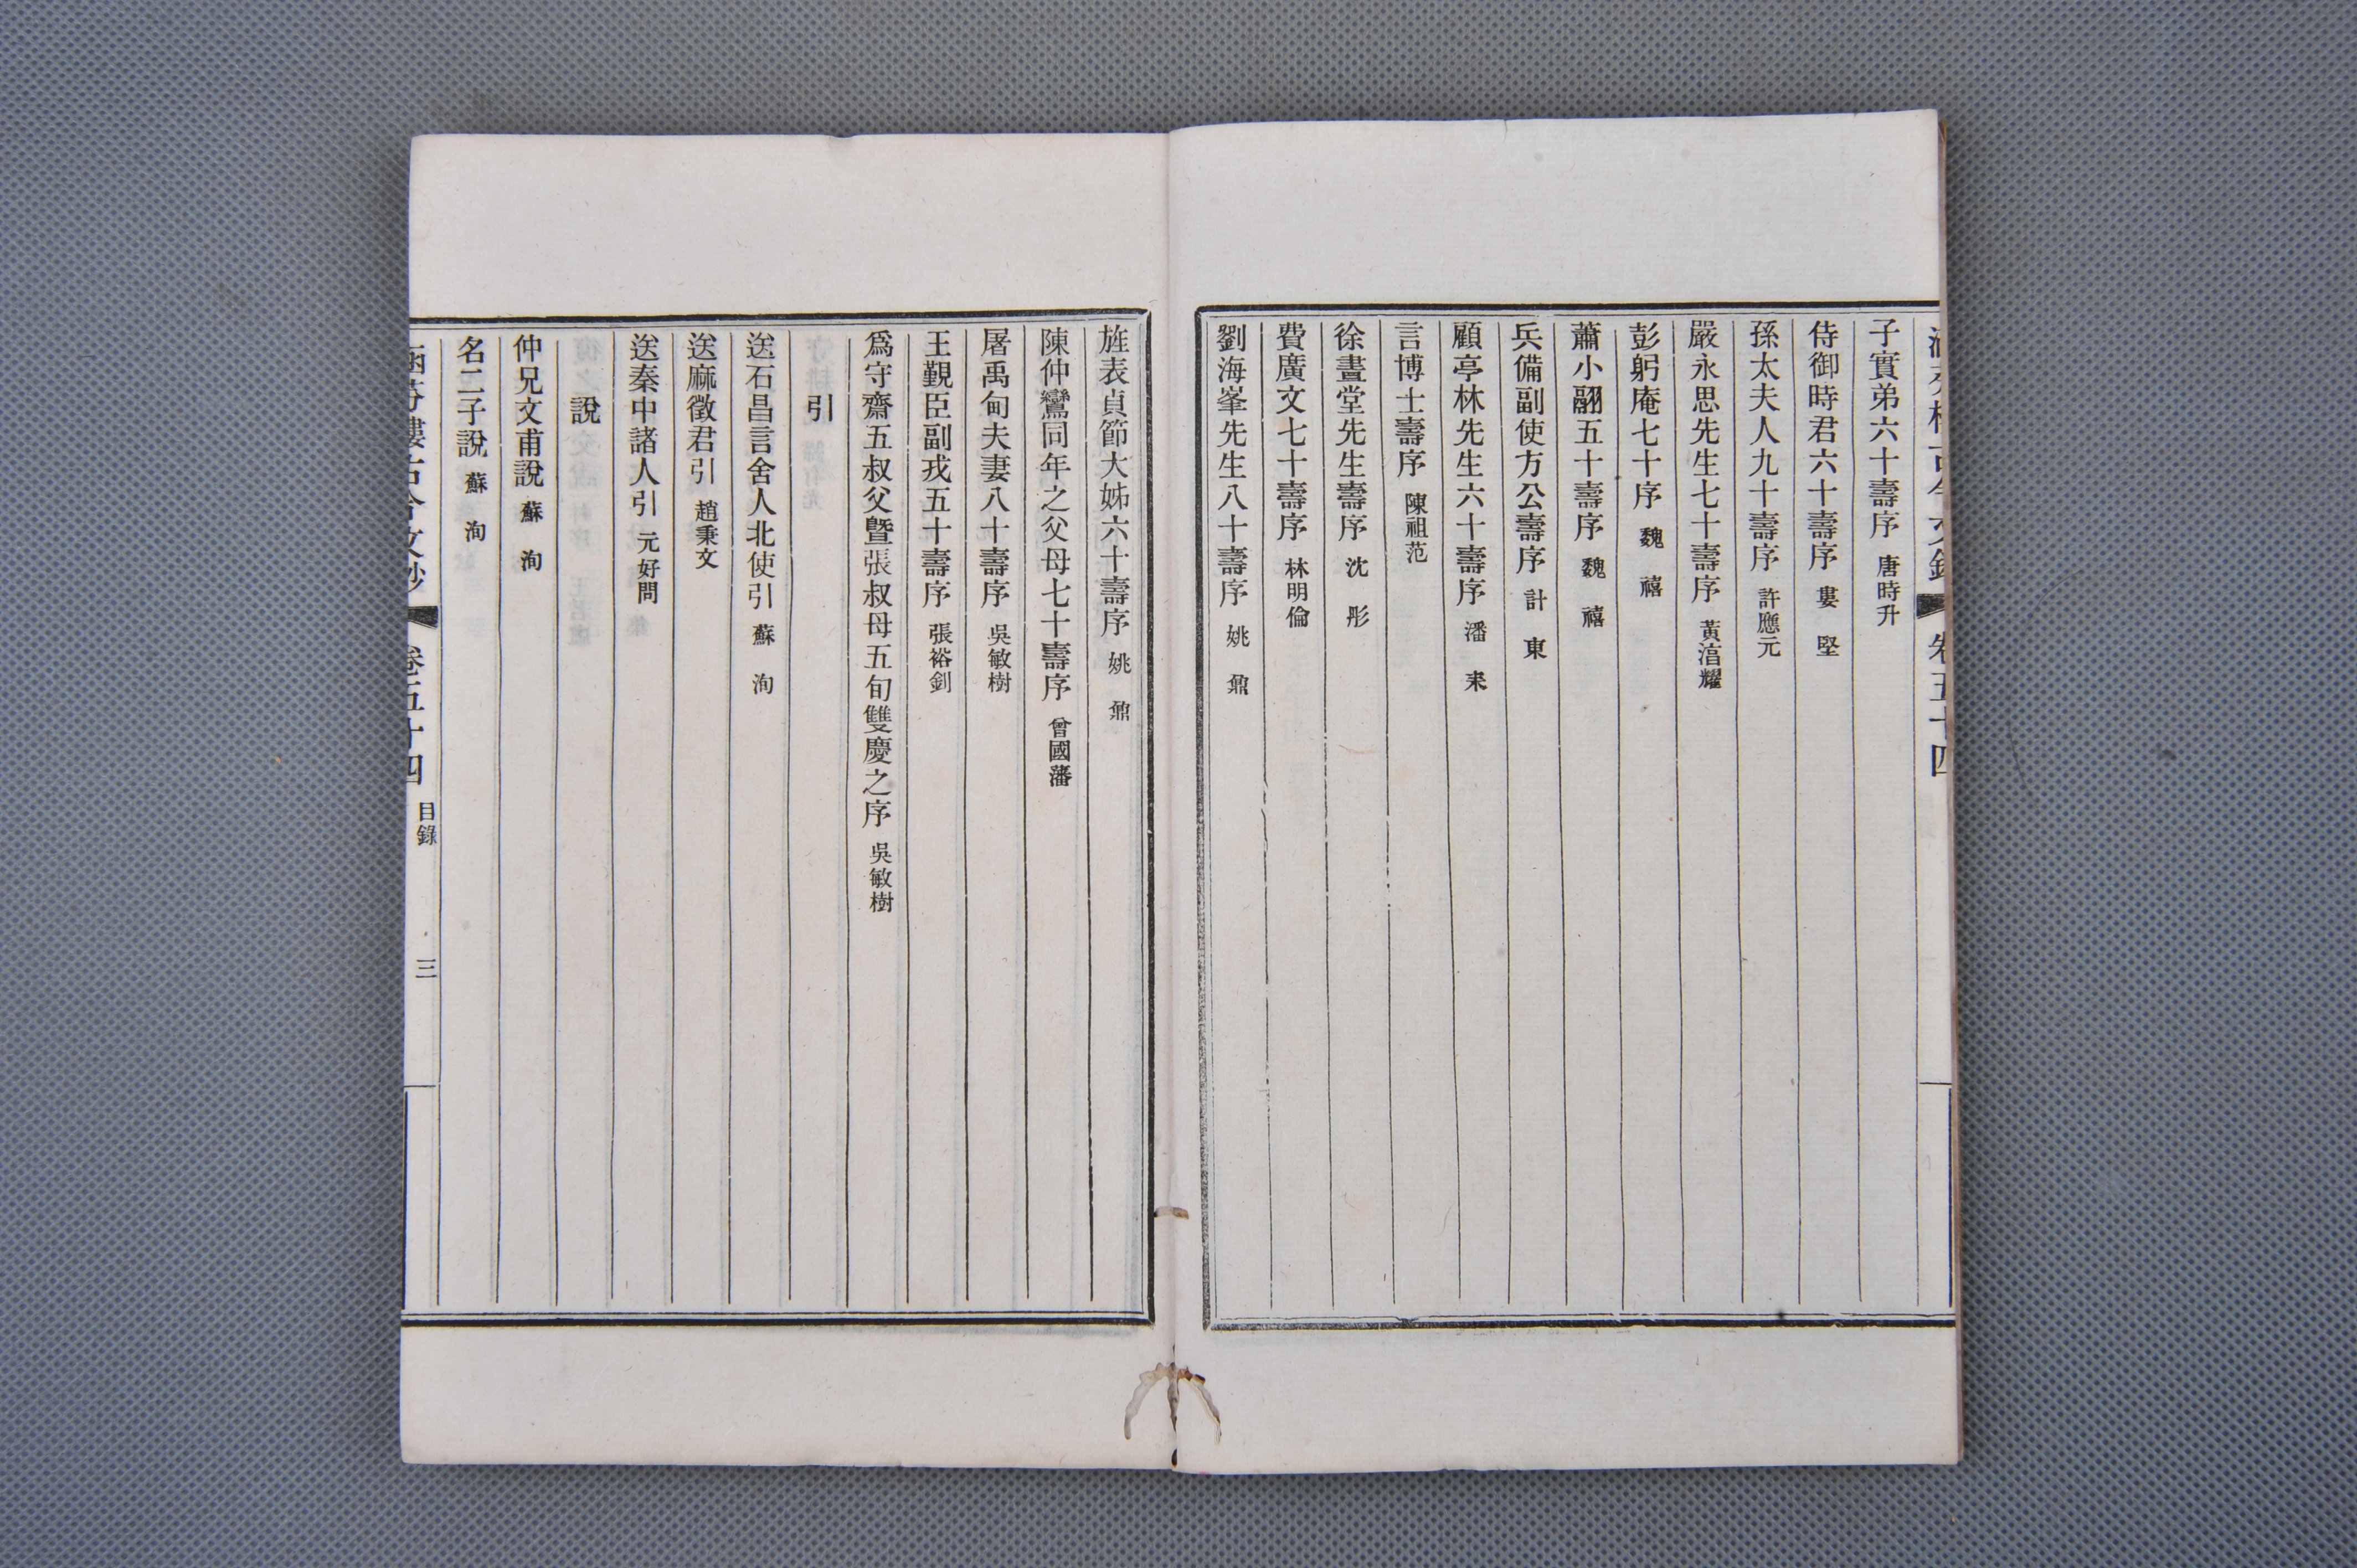 子實弟六十壽序 唐時升
侍御時君六十壽序 婁 堅
孫太夫人九十壽序 許應元
嚴永思先生七十壽序 黃淳耀
彭躬庵七十序 魏 禧
蕭小翮五十壽序 魏 禧
兵備副使方公壽序 計 東
顧亭林先生六十壽序 潘 耒
言博士壽序 陳祖范
徐晝堂先生壽序 沈 彤
費廣文七十壽序 林明倫
劉海峯先生八十壽序 姚 鼐
旌表貞節大姊六十壽序 姚 鼐
陳仲鸞同年之父母七十壽序 曾國藩
屠禹甸夫妻八十壽序 吳敏樹
王觀臣副戎五十壽序 張裕釗
爲守齋五叔父曁張叔母五旬雙慶之序 吳敏樹
引
送石昌言舍人北使引 蘇 洵
送麻徵君引 趙秉文
送秦中諸人引 元好問
說
仲兄文甫說 蘇 洵
名二子說 蘇 洵
涵芬樓古今文鈔 卷五十四 目錄 三